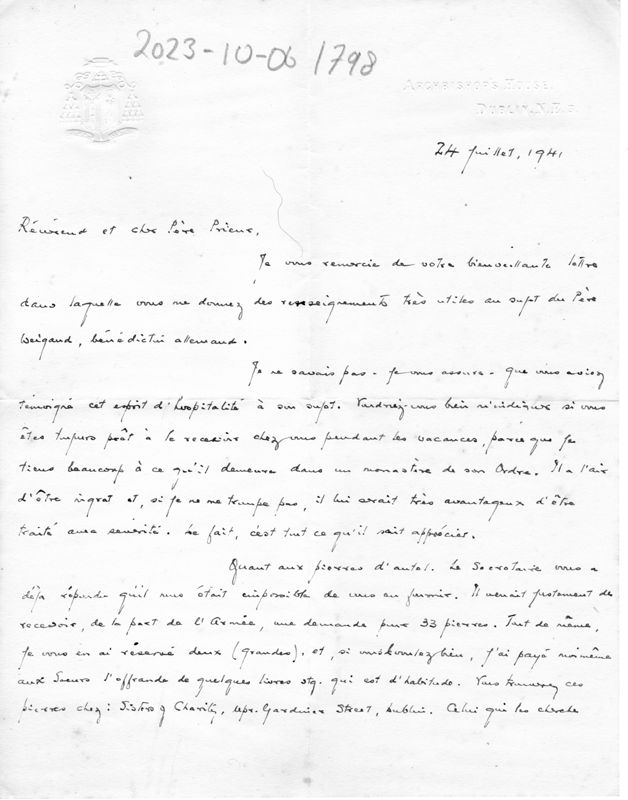 2023-10-06 1798
ARCHBISHOP'S HOUSE,
DUBLIN, N.E.3.
24 juillet, 1941
Révérend et cher Père Prieur,
Je vous remercie de votre bienveillante lettre
dans laquelle vous me donnez des renseignements très utiles au sujet du Père
Weigand, bénédictin allemand.
Je ne savais pas - je vous assure - que vous aviez
témoigné cet esprit d'hospitalité à son sujet. Voudriez-vous bien m'indiquer si vous
êtes toujours prêt à le recevoir chez vous pendant les vacances, parce que je
tiens beaucoup à ce qu'il demeure dans un monastère de son Ordre. Il a l'air
d'être ingrat et, si je ne me trompe pas, il lui serait très avantageux d'être
traité avec sévérité. De fait, c'est tout ce qu'il sait apprécier.
Quant aux pierres d'autel. Le Secrétaire vous a
déjà répondu qu'il nous était impossible de vous en fournir. Il venait justement de
recevoir, de la part de l'Armée, une demande pour 33 pierres. Tout de même,
je vous en ai réservé deux (grandes). et, si vous voulez bien, j'ai payé moi-même
aux Soeurs l'offrande de quelques livres stg. qui est d'habitude. Vous trouverez ces
pierres chez: Sisters of Charity, Upr. Gardiner Street, Dublin. Celui qui les cherche